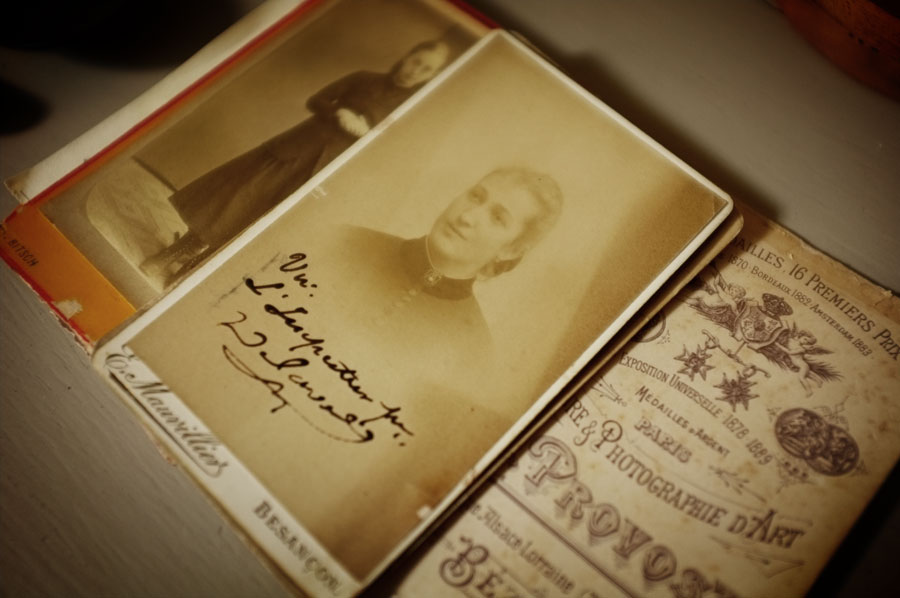 BITSCH
Vu:
L'Inspecteur pr..
E. Mauvillier
BESANÇON
AILLES, 16 PREMIERS PRIX
1870 BORDEAUX 1882 AMSTERDAM 1883
EXPOSITION UNIVERSELLE 1878 1889
MÉDAILLES D'ARGENT
PARIS
RE & PHOTOGRAPHIE D'ART
PROVOST
Alsace Lorraine